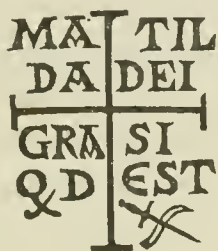 MA TIL
DA DEI
GRA SI
QD EST